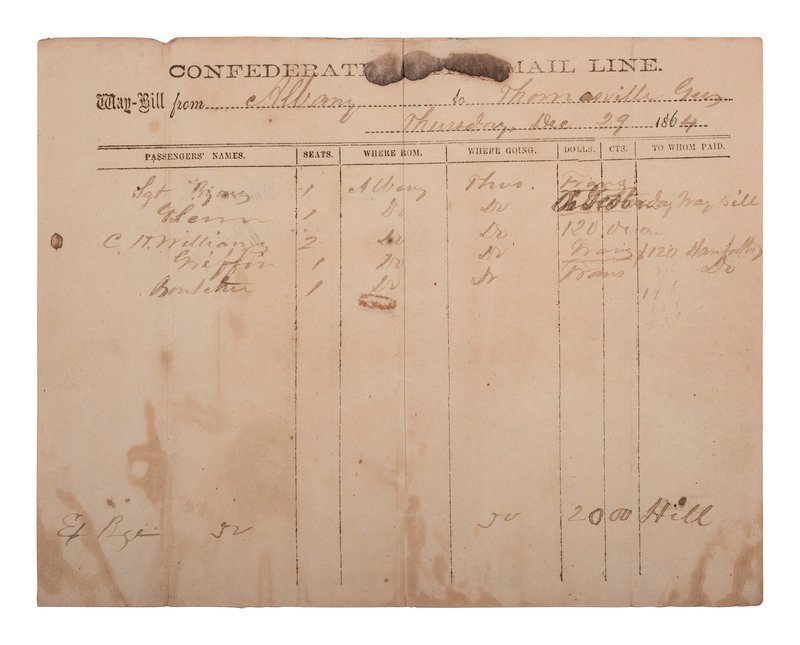 CONFEDERAT MAIL LINE.
Way-Bill from Albany to Thomasville Geo
Thursday, Dec 29 1864
PASSENGERS' NAMES. SEATS. WHERE ROM. WHERE GOING. DOLLS. CTS. TO WHOM PAID.
Sgt 1 Albany Thos. Trans
Glenn 1 Do Do Way Bill
C. H. Williams 2 Do Do 120 00
Griffin 1 Do Do Trans $120
Boutcher 1 Do Do Trans Do
Ex 20 00 Hill